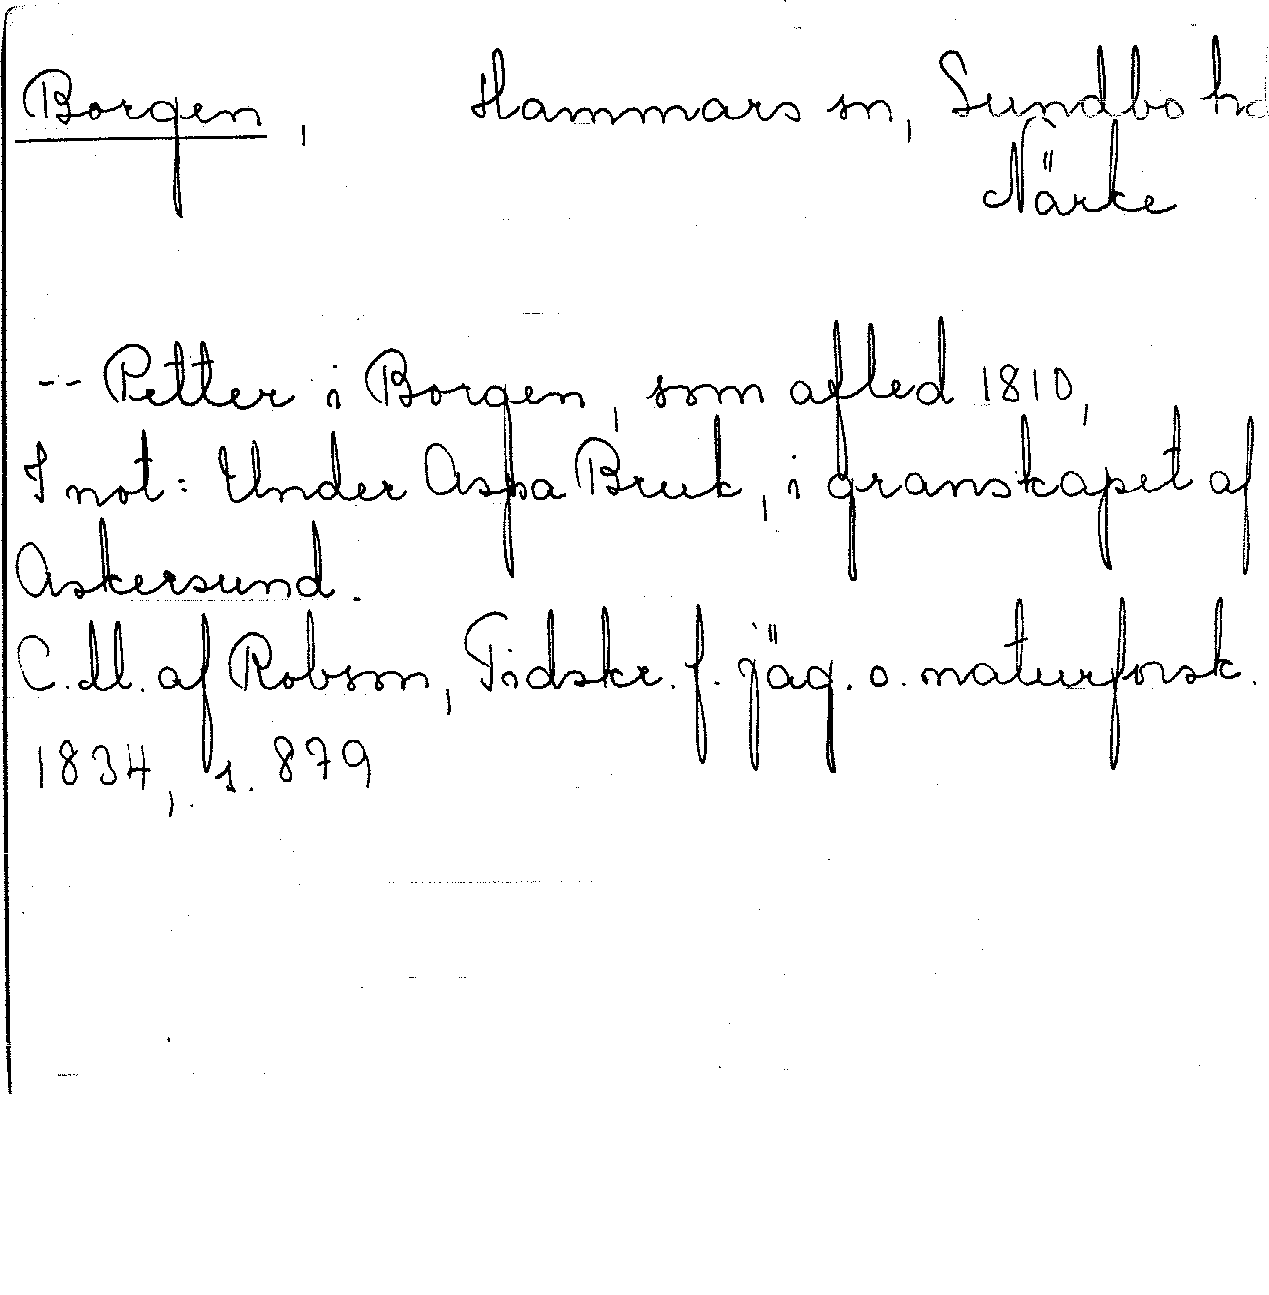 Borgen, Hammars sn, Sundbo hd
Närke
-- Petter i Borgen, som afled 1810,
I not: Under Aspa Bruk, i granskapet af
Askersund.
C.U. af Robson, Tidskr. f. jäg. o. naturforsk.
1834, s. 879